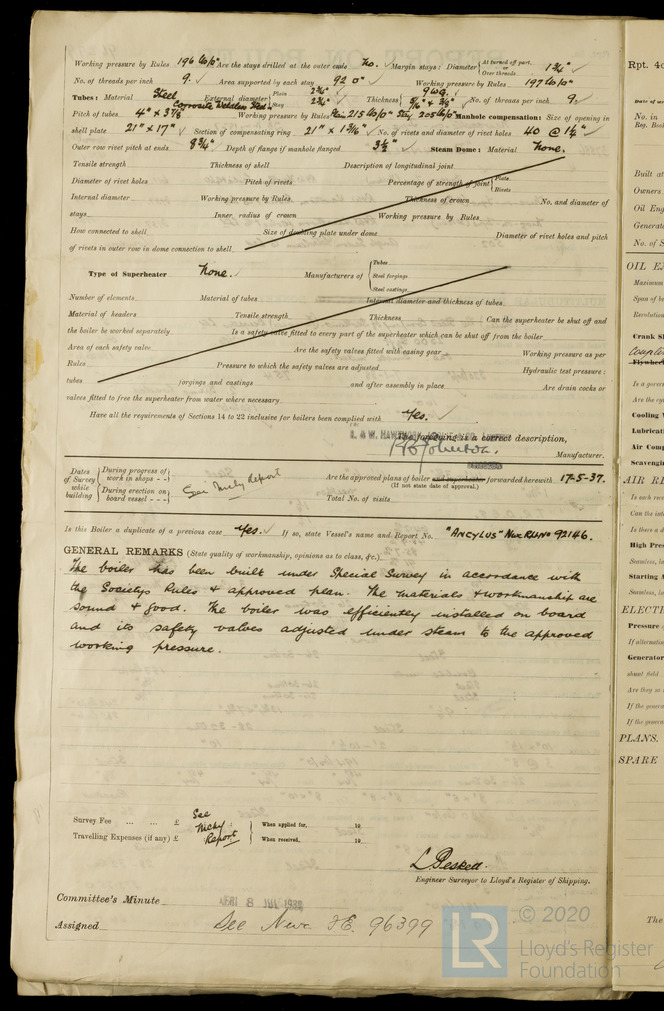 Working pressure by Rules 196 lb/□" Are the stays drilled at the outer ends No. Margin stays: Diameter { At turned off part, or Over threads 1¾"
No. of threads per inch 9. Area supported by each stay 92 □" Working pressure by Rules 197 lb/□"
Tubes: Material Steel External diameter { Plain 2¾" Stay 2¾" Thickness { 9 W.G. 5/16" & 3/8" No. of threads per inch 9.
Pitch of tubes 4" × 3⅞" Working pressure by Rules Plain 215 lb/□" Stay 205 lb/□" Manhole compensation: Size of opening in
shell plate 21" × 17" Section of compensating ring 21" × 1 7/16" No. of rivets and diameter of rivet holes 40 @ 1¼"
Outer row rivet pitch at ends 8¾" Depth of flange if manhole flanged 3½" Steam Dome: Material None.
Tensile strength Thickness of shell Description of longitudinal joint
Diameter of rivet holes Pitch of rivets Percentage of strength of joint { Plate Rivets
Internal diameter Working pressure by Rules Thickness of crown No. and diameter of
stays Inner radius of crown Working pressure by Rules
How connected to shell Size of doubling plate under dome Diameter of rivet holes and pitch
of rivets in outer row in dome connection to shell
Type of Superheater None. Manufacturers of { Tubes Steel forgings Steel castings
Number of elements Material of tubes Internal diameter and thickness of tubes
Material of headers Tensile strength Thickness Can the superheater be shut off and
the boiler be worked separately Is a safety valve fitted to every part of the superheater which can be shut off from the boiler
Area of each safety valve Are the safety valves fitted with easing gear Working pressure as per
Rules Pressure to which the safety valves are adjusted Hydraulic test pressure:
tubes forgings and castings and after assembly in place Are drain cocks or
valves fitted to free the superheater from water where necessary
Have all the requirements of Sections 14 to 22 inclusive for boilers been complied with Yes.
The foregoing is a correct description,
Manufacturer.
Dates of Survey while building { During progress of work in shops - - During erection on board vessel - - - See Mchy Report
Are the approved plans of boiler and superheater forwarded herewith 17-5-37.
(If not state date of approval.)
Total No. of visits
Is this Boiler a duplicate of a previous case Yes. If so, state Vessel's name and Report No. "ANCYLUS" Nwc Rpt No 92146.
GENERAL REMARKS (State quality of workmanship, opinions as to class, &c.)
The boiler has been built under Special Survey in accordance with
the Societys Rules & approved plan. The materials & workmanship are
sound & good. The boiler was efficiently installed on board
and its safety valves adjusted under steam to the approved
working pressure.
Survey Fee ... ... £ See Mchy Report When applied for, 19
Travelling Expenses (if any) £ When received, 19
L Beskett.
Engineer Surveyor to Lloyd's Register of Shipping.
Committee's Minute
Assigned See Nwc. F.E. 96399
LR © 2020
Lloyd's Register
Foundation
Rpt. 4c
No. in
Reg. Book
Built at
Owners
Oil Eng
Generato
No. of S
OIL E
Maximum
Span of b
Revolution
Crank S
Flywhee
Is a gover
Are the cy
Cooling
Lubricati
Air Comp
Scavengin
AIR R
Is each rec
Can the inte
Is there a d
High Pres
Seamless, la
Starting A
Seamless, la
ELECTI
Pressure
If alternatin
Generator
shunt field
Are they so
If the genera
If the genera
PLANS.
SPARE
The